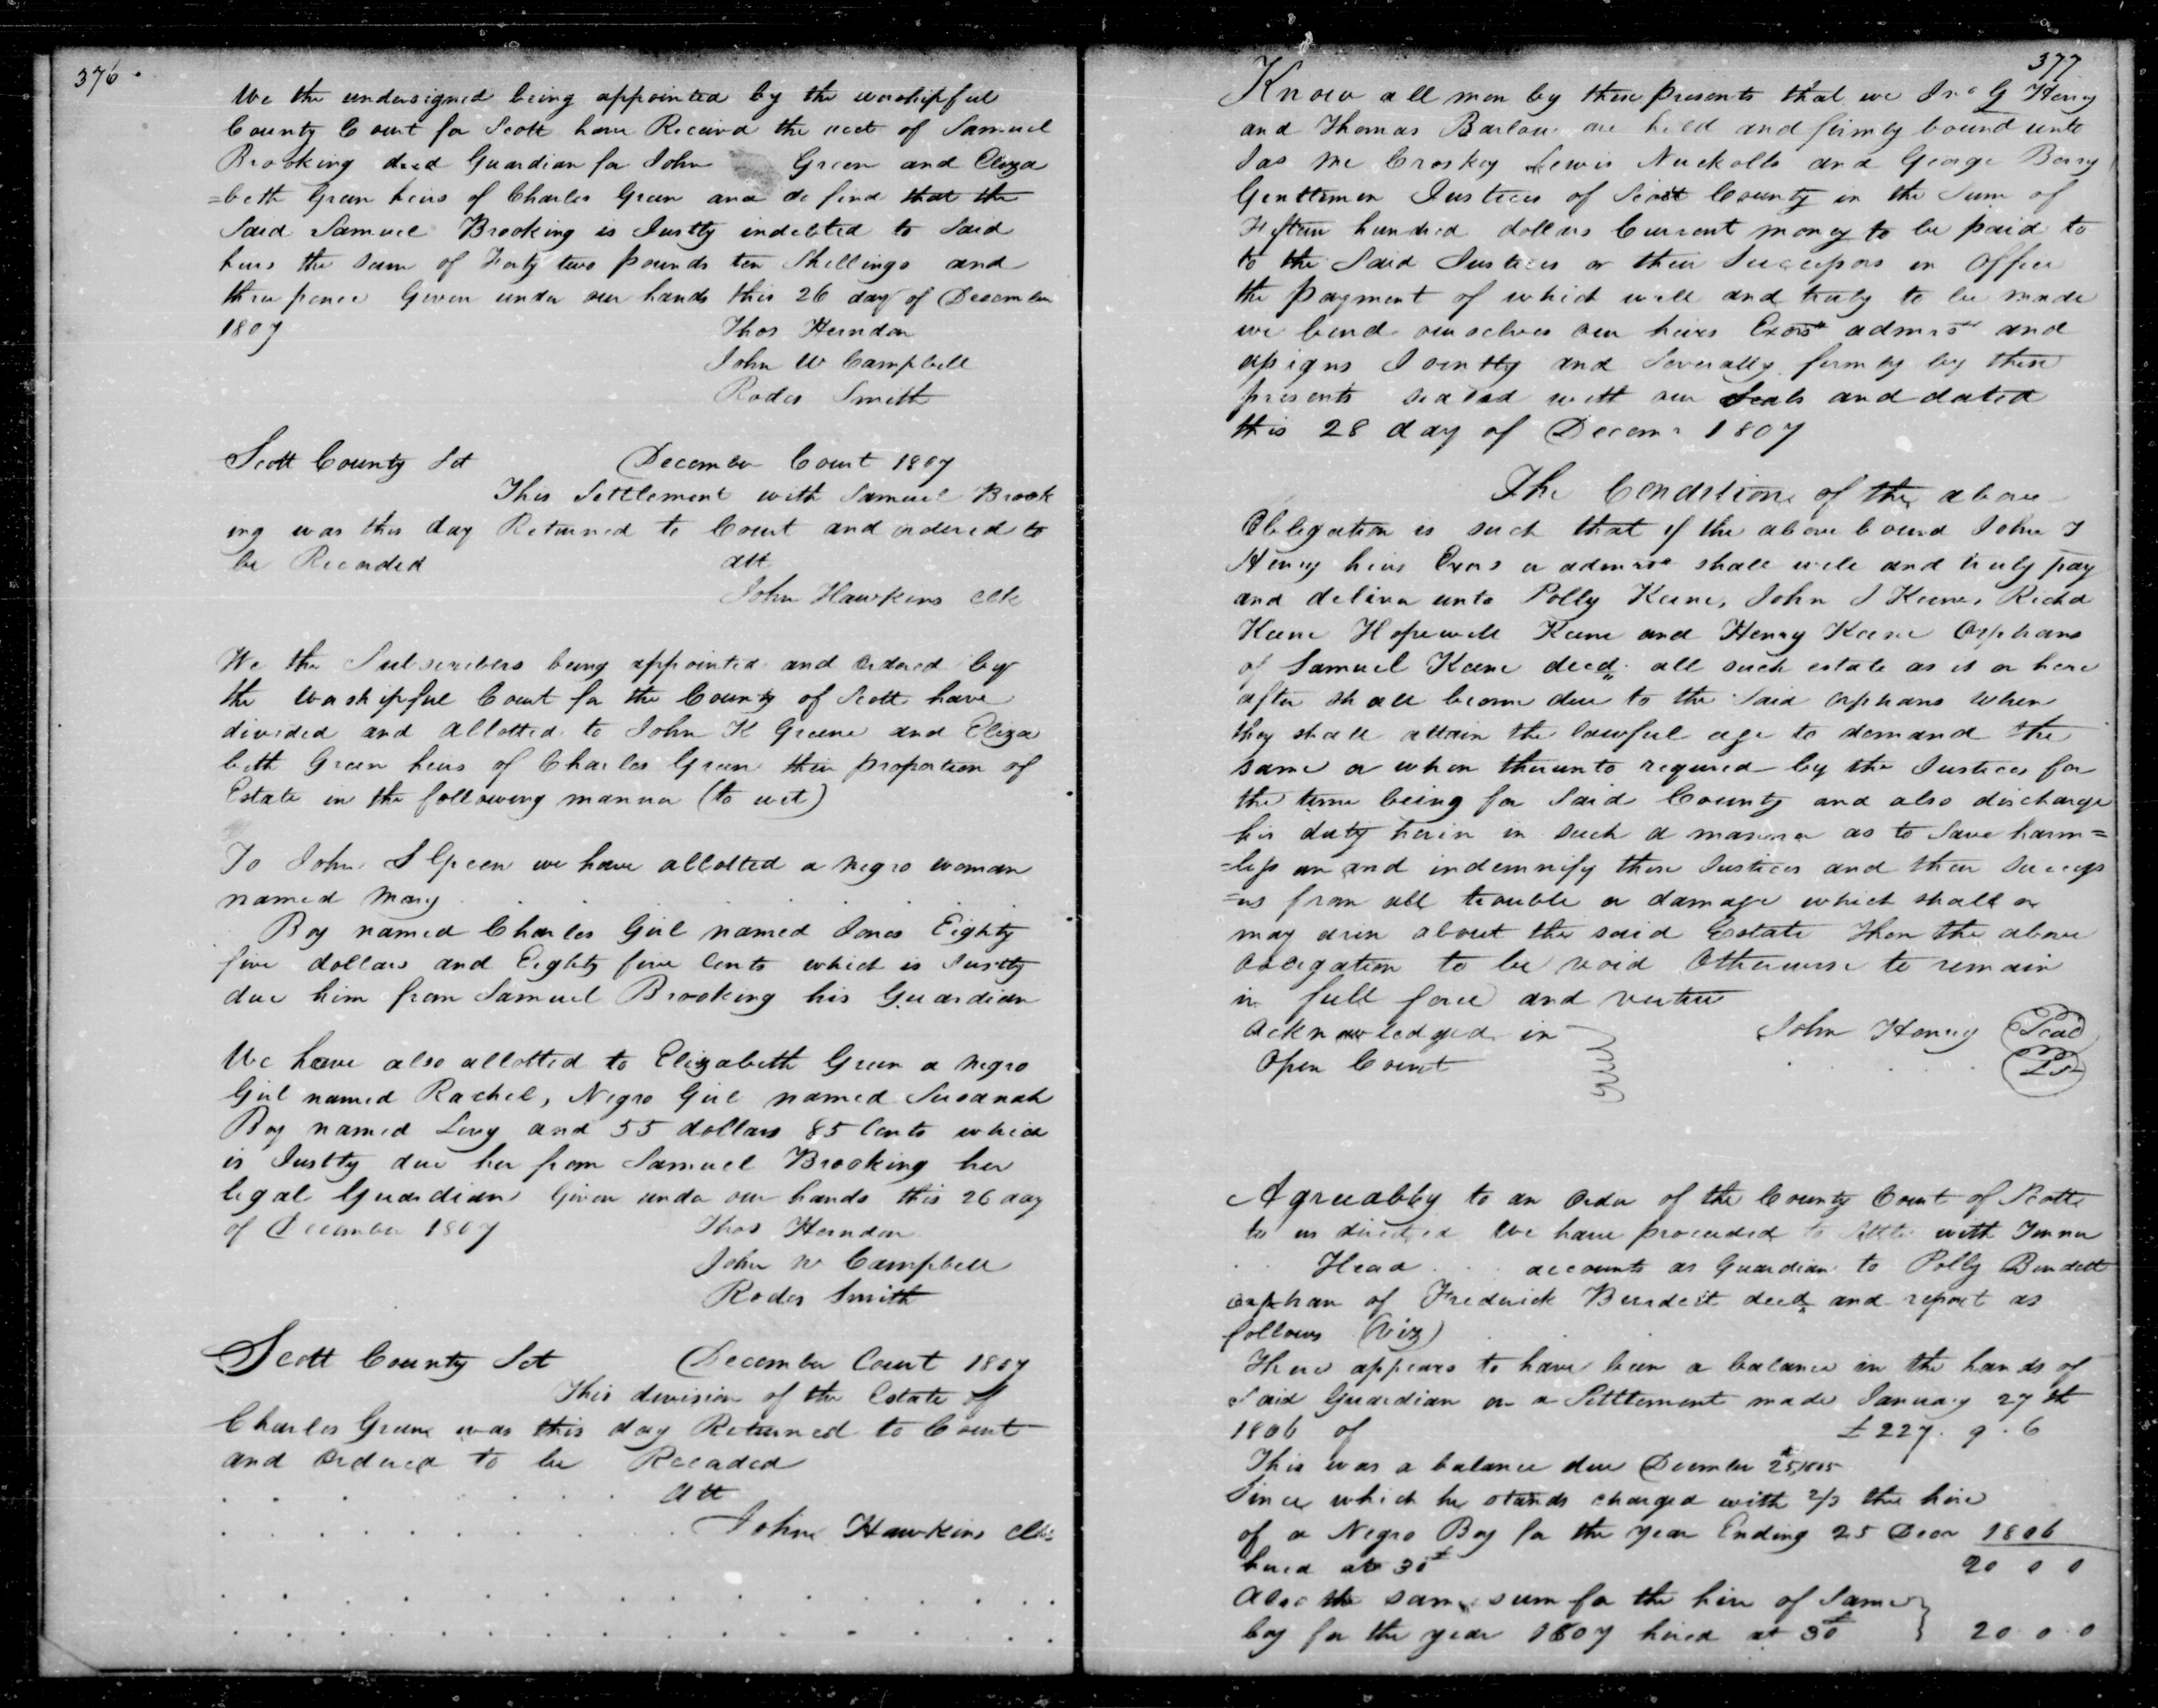 376
We the undersigned being appointed by the worshipful
County Court for Scott have Received the acct of Samuel
Brooking decd Guardian for John Green and Eliza
=beth Green heirs of Charles Green and do find that the
Said Samuel Brooking is Justly indebted to Said
heirs the sum of Forty two pounds ten Shillings and
three pence Given under our hands this 26 day of December
1807 Thos Herndon
John W Campbell
Rodes Smith
Scott County Sct December Court 1807
This Settlement with Samuel Brook
ing was this day Returned to Court and ordered to
be Recorded att
John Hawkins Clk
We the Subscribers being appointed and ordered by
the Worshipful Court for the County of Scott have
divided and allotted to John K Greene and Eliza
beth Green heirs of Charles Green their proportion of
Estate in the following manner (to wit)
To John S Green we have allotted a negro woman
named Mary
Boy named Charles Girl named Jones Eighty
five dollars and Eighty five Cents which is Justly
due him from Samuel Brooking his Guardian
We have also allotted to Elizabeth Green a negro
Girl named Rachel, Negro Girl named Susanah
Boy named Levy and 55 dollars 85 Cents which
is Justly due her from Samuel Brooking her
legal Guardian Given under our hands this 26 day
of December 1807 Thos Herndon
John W Campbell
Rodes Smith
Scott County Sct December Court 1807
This division of the Estate of
Charles Greene was this day Returned to Court
and Ordered to be Recorded
Att
John Hawkins Clk
377
Know all men by these presents that we Jno G Henry
and Thomas Barlow are held and firmly bound unto
Jas Mc Croskey Lewis Nuckolls and George Berry
Gentlemen Justices of Scott County in the Sum of
Fifteen hundred dollars Current money to be paid to
to the Said Justices or their Successors in Office
the payment of which well and truly to be made
we bind ourselves our heirs Exors admrs and
assigns Jointly and Severally firmly by these
presents sealed with our Seals and dated
this 28 day of Decemr 1807
The Conditions of the above
Obligation is such that if the above bound John J
Henry heirs Exors or admrs shall well and truly pay
and deliver unto Polly Keene, John J Keene, Richd
Keene Hopewell Keene and Henry Keene Orphans
of Samuel Keene decd. all such estate as is or here
after shall become due to the Said orphans when
they shall attain the lawful age to demand the
same or when thereunto required by the Justices for
the time being for Said County and also discharge
his duty herein in such a manner as to Save harm=
=less an and indemnify these Justices and their Success
=ors from all trouble or damage which shall or
may arise about the said Estate Then the above
Obligation to be void Otherwise to remain
in full force and virtue
Acknowledged in John Henry Seal
Open Court
Agreeably to an Order of the County Court of Scott
to us directed We have proceeded to Settle with
Head accounts as Guardian to Polly Burdett
orphan of Frederick Burdett decd and report as
follows (Viz)
There appears to have been a balance in the hands of
Said Guardian on a Settlement made January 27th
1806 of £227. 9. 6
This was a balance due December 25, 1805
Since which he stands charged with 2/3 the hire
of a Negro Boy for the year Ending 25 Decr 1806
hired at 30£ 20 0 0
Also the same sum for the hire of Same
boy for the year 1807 hired at 30£ 20 0 0